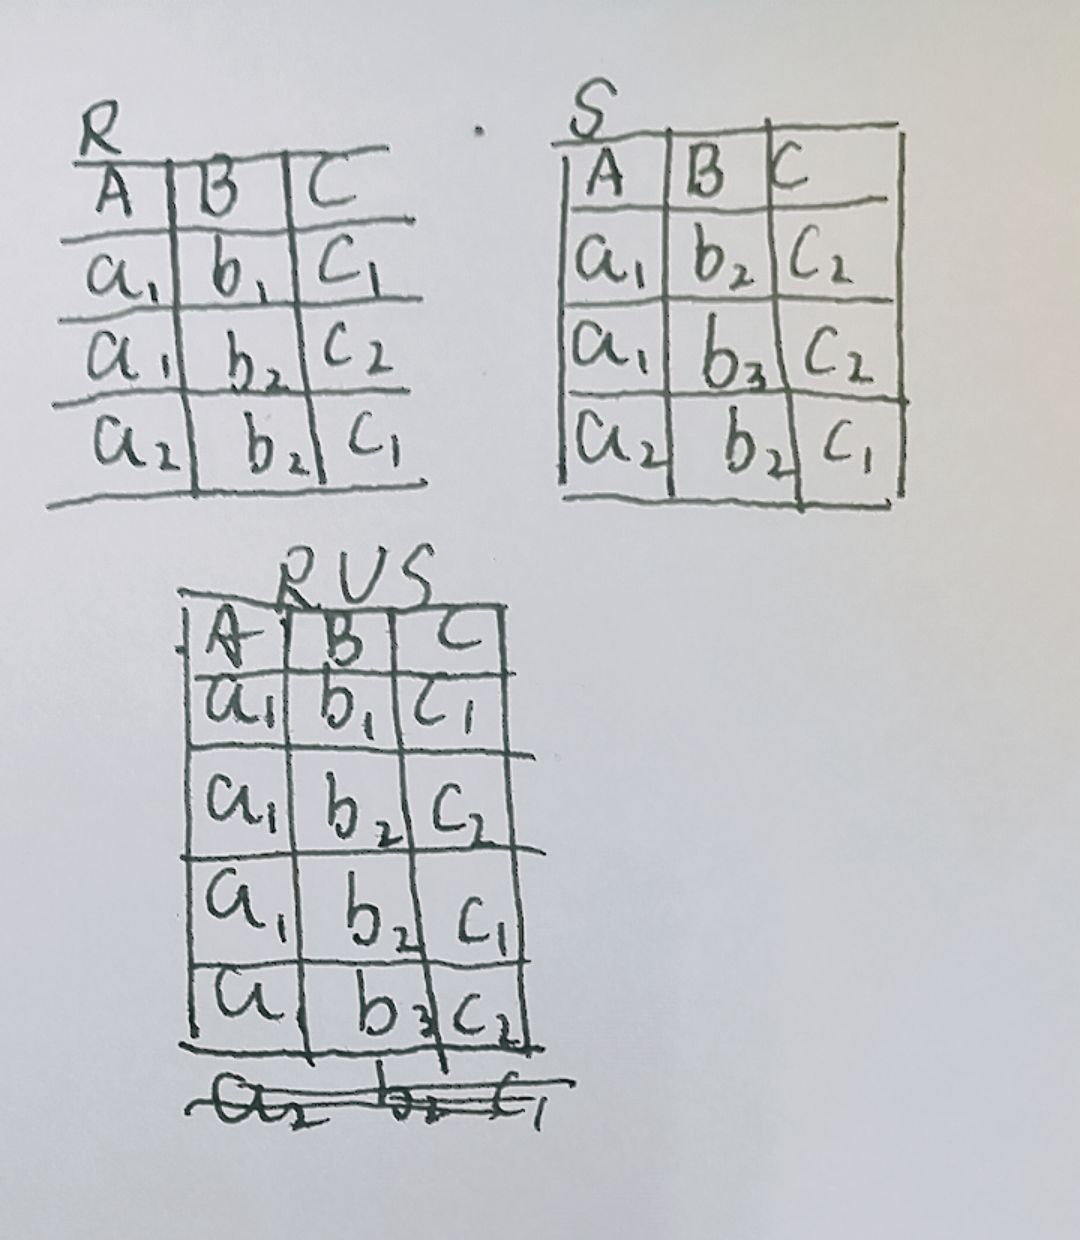 R
A B C
a₁ b₁ c₁
a₁ b₂ c₂
a₂ b₂ c₁
S
A B C
a₁ b₂ c₂
a₁ b₃ c₂
a₂ b₂ c₁
R∪S
A B C
a₁ b₁ c₁
a₁ b₂ c₂
a₁ b₂ c₁
a₁ b₃ c₂
a₂ b₂ c₁